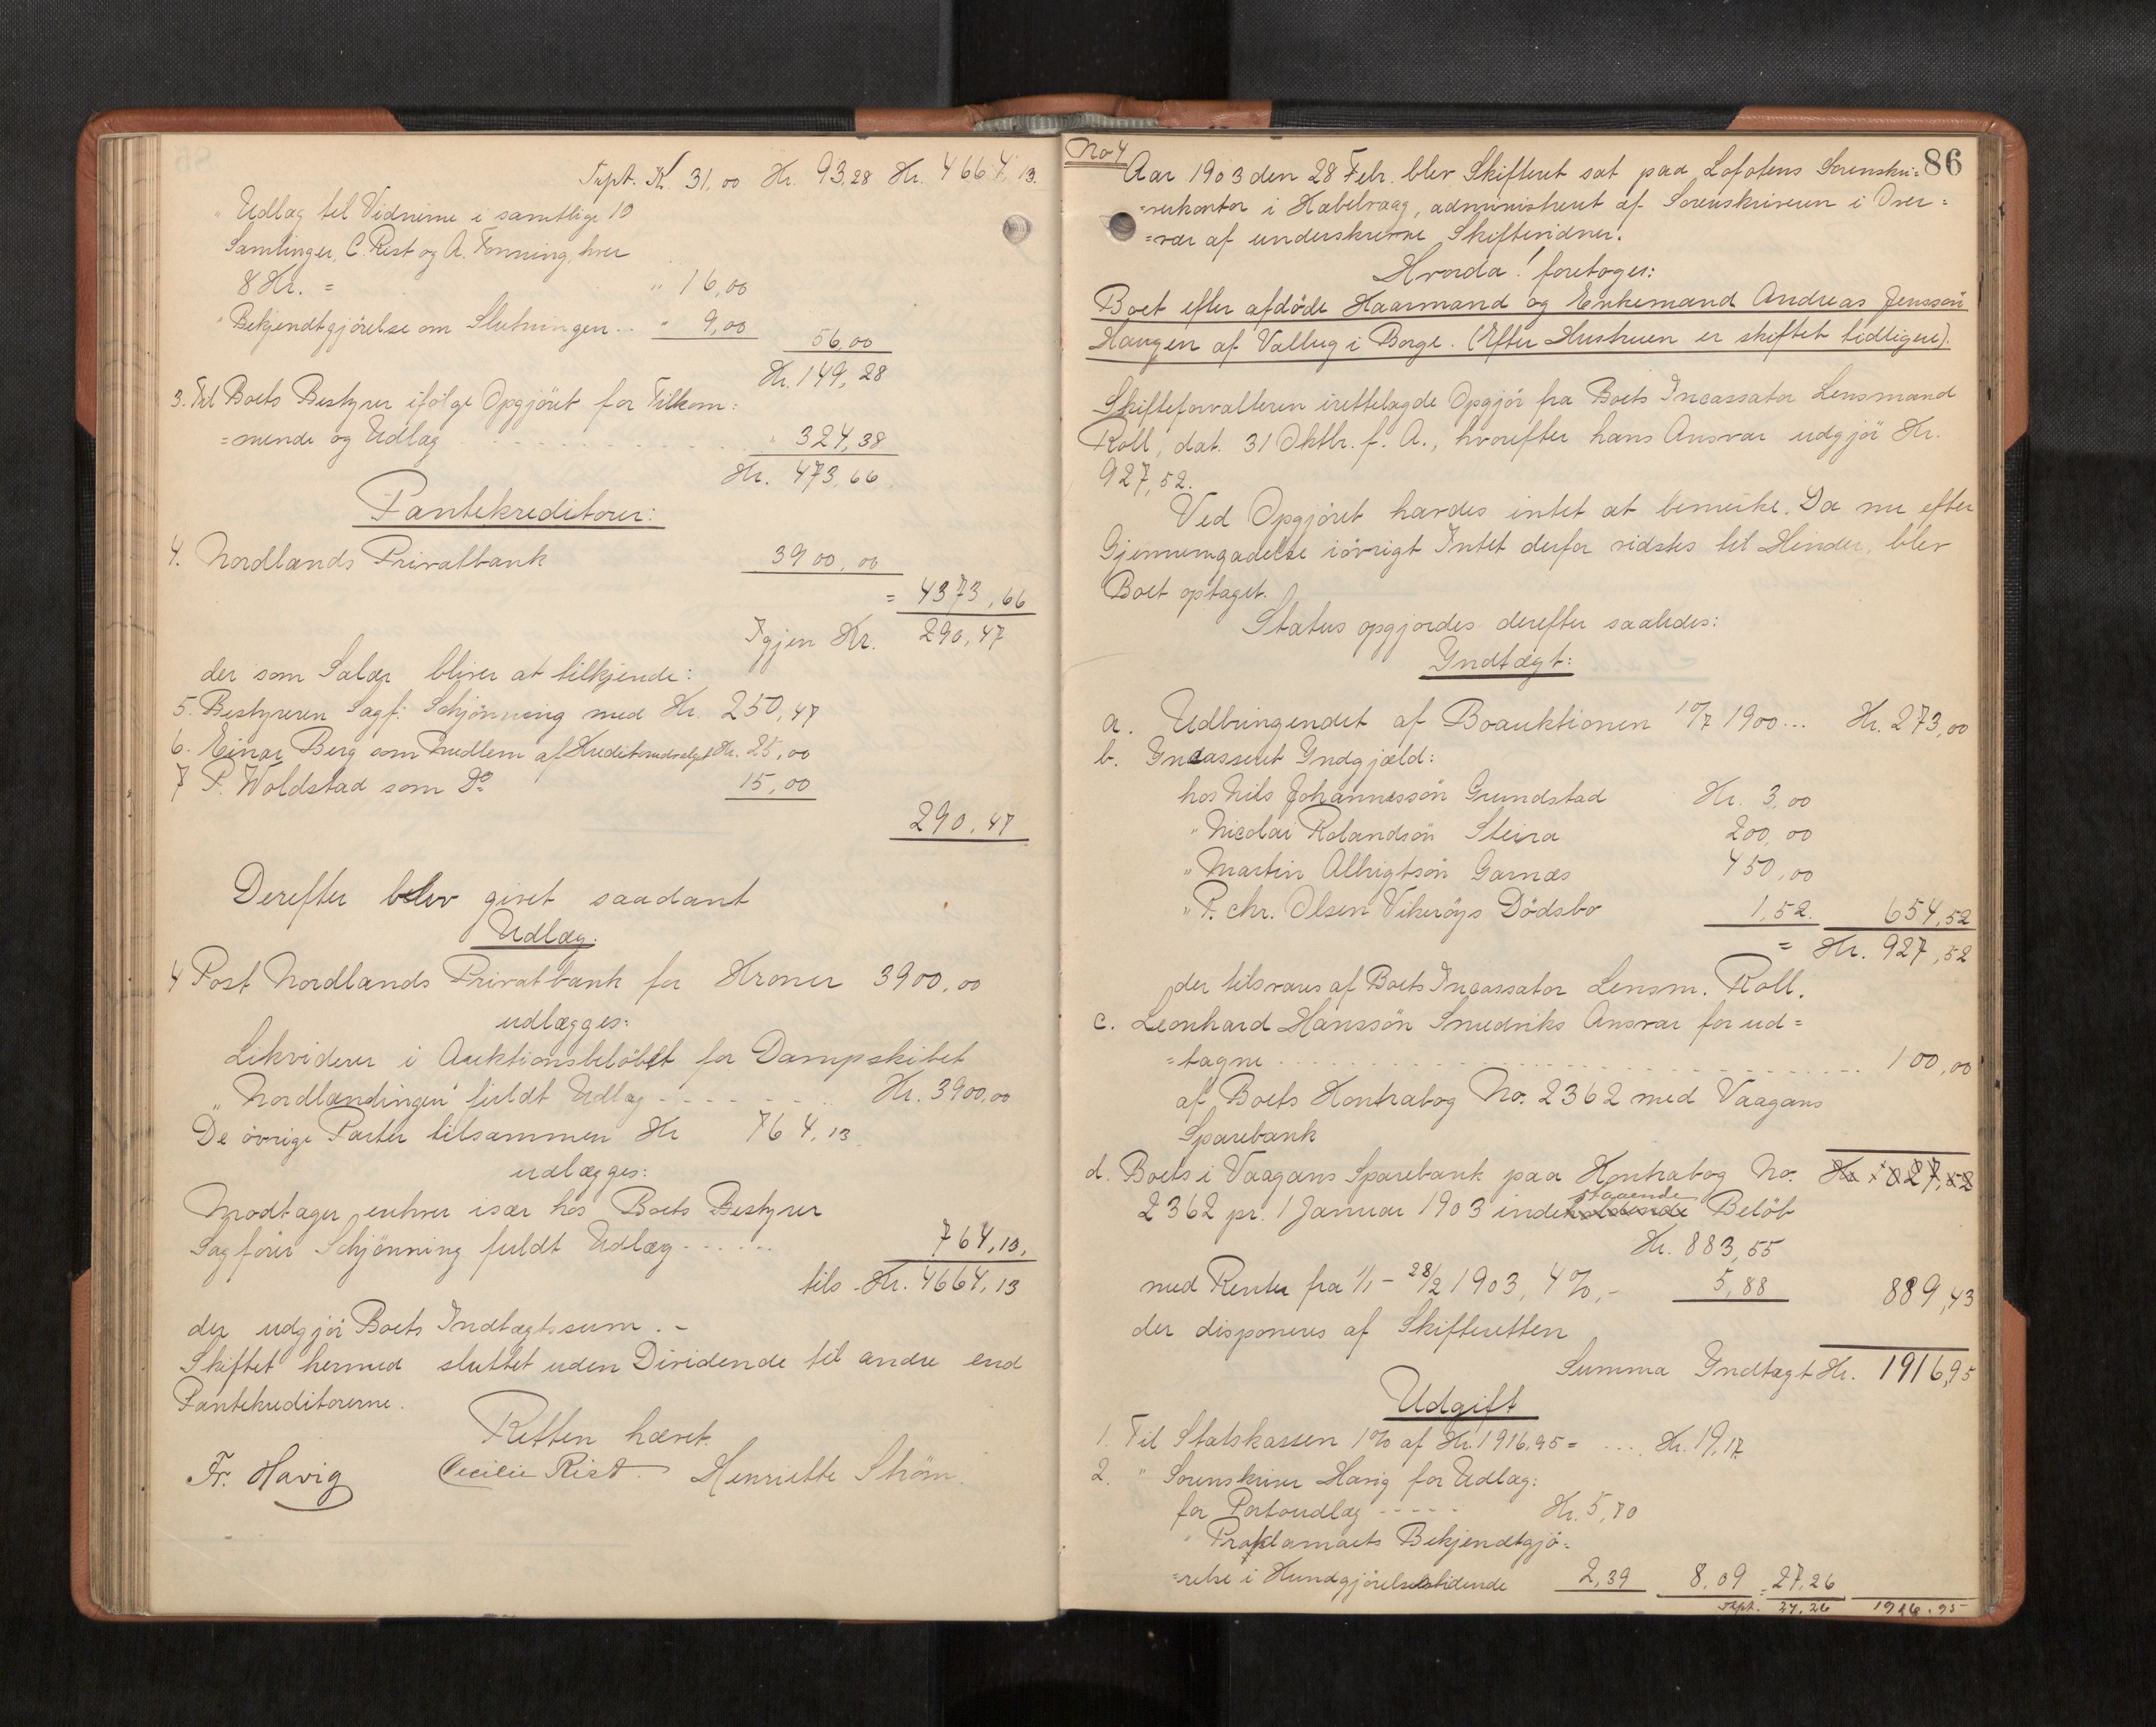 Trpt. Kr. 31,00 Kr. 93,28 Kr. 4664,13.
" Udlæg til Vidnerne i samtlige 10
Samlinger, C. Rist og A. Fonning, hver
8 Kr. = " 16,00
" Bekjendtgjörelse om Slutningen .. " 9,00 56,00
Kr. 149,28
3. Til Boets Bestyrer ifölge Opgjöret for Tilkom:
=mende og Udlæg " 324,38
Kr. 473,66
Pantekreditorer:
4. Nordlands Privatbank 3900,00
= 4373,66
Igjen Kr. 290,47
der som Salær bliver at tilkjende:
5. Bestyreren Sagf. Schjönning med Kr. 250,47
6. Einar Berg som Medlem af Kreditorudvalget Kr. 25,00
7 P. Woldstad som Do 15,00
290,47
Derefter blev givet saadant
Udlæg.
4 Post Nordlands Privatbank for Kroner 3900,00
udlægges:
Likviderer i Auktionsbelöbet for Dampskibet
"Nordlændingen" fuldt Udlæg - - - - Kr. 3900,00
De övrige Poster tilsammen Kr 764,13
udlægges:
Modtager enhver især hos Boets Bestyrer
Sagförer Schjönning fuldt Udlæg - - - - 764,13.
tils. Kr. 4664,13
der udgjör Boets Indtægtssum. -
Skiftet hermed sluttet uden Dividende til andre end
Pantekreditorerne.
Retten hævet.
Fr. Havig Cecilie Rist. Henriette Ström.
No 4
86
Aar 1903 den 28 Febr. blev Skifteret sat paa Lofotens Sorenskri=
=verkontor i Kabelvaag, administreret af Sorenskriveren i Over=
=vær af underskrevne Skiftevidner.
Hvorda! foretoges:
Boet efter afdöde Gaarmand og Enkemand Andreas Jenssön
Haugen af Vallug i Borge. (Efter Hustruen er skiftet tidligere).
Skifteforvalteren irettelagde Opgjör fra Boets Incassator Lensmand
Roll, dat. 31 Oktbr. f. A., hvorefter hans Ansvar udgjör Kr.
927,52.
Ved Opgjöret havdes intet at bemærke. Da nu efter
Gjennemgaaelse iövrigt Intet derfor vidstes til Hinder, blev
Boet optaget.
Status opgjordes derefter saaledes:
Indtægt:
a. Udbringendet af Boauktionen 10/7 1900 ... Kr. 273,00
b. Incasseret Indgjæld:
hos Nils Johannessön Grundstad Kr. 3,00
" Nicolai Rolandsön Steira 200,00
" Martin Albrigtsön Garnæs 450,00
" P. Chr. Olsen Vikeröys Dödsbo 1,52. 654,52
= Kr. 927,52
der tilsvares af Boets Incassator Lensm. Roll.
c. Leonhard Hanssön Smedviks Ansvar for ud=
=tagne 100,00
af Boets Kontrabog No. 2362 med Vaagans
Sparebank
d. Boets i Vaagans Sparebank paa Kontrabog No. Kr 1027,52
2362 pr. 1 Januar 1903 indestaaende Belöb
Kr. 883,55
med Renter fra 1/1 - 28/2 1903, 4%, - 5,88 889,43
der disponeres af Skifteretten
Summa Indtægt Kr. 1916,95
Udgift
1. Til Statskassen 1% af Kr. 1916,95 = .... Kr. 19,17
2. " Sorenskriver Havig for Udlæg:
for Portoudlæg - - - - - Kr. 5,70
" Proklamaets Bekjendtgjö=
=relse i Kundgjörelsestidende 2,39 8,09 = 27,26
Trpt. 27,26 1916,95